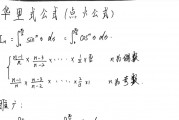 华里士公式(点火公式)
I_n = ∫_0^{π/2} sin^n θ dθ = ∫_0^{π/2} cos^n θ dθ
= { (n-1)/n × (n-3)/(n-2) × ⋯ × 1/2 × π/2 n为偶数
(n-1)/n × (n-3)/(n-2) × ⋯ × 2/3 ×1 n为奇数